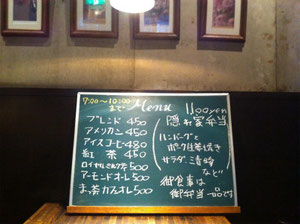 7:00〜10:00
まで
Menu
ブレンド 450
アメリカン 450
アイスコーヒー 480
紅茶 450
ロイヤルミルク茶 500
アーモンドオーレ 500
まっ茶カフェオレ 500
1100yen
隠れ家弁当
ハンバーグと
ポーク生姜焼き
サラダ、
など
御食事は
御弁当一品です